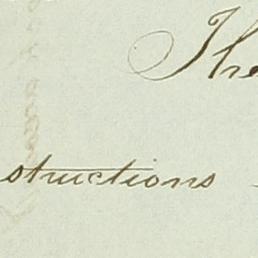 The
structions